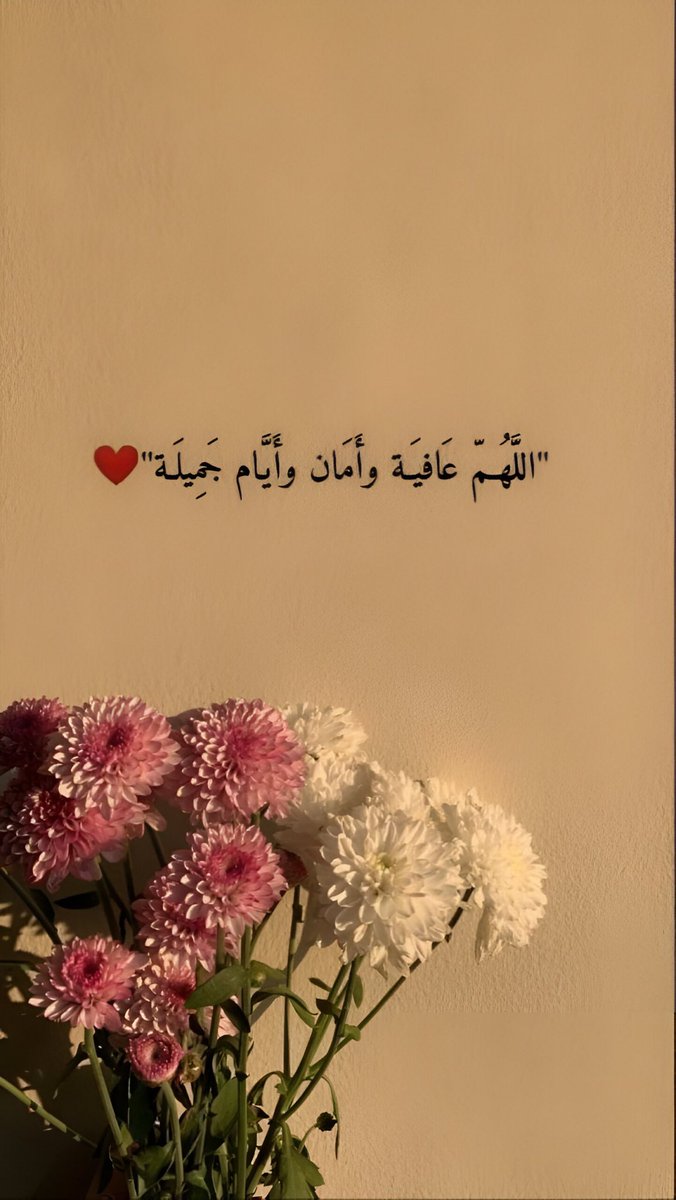 "اللَّهُـمّ عَافيَـة وأَمَان وأَيَّام جَمِيلَـة"❤️